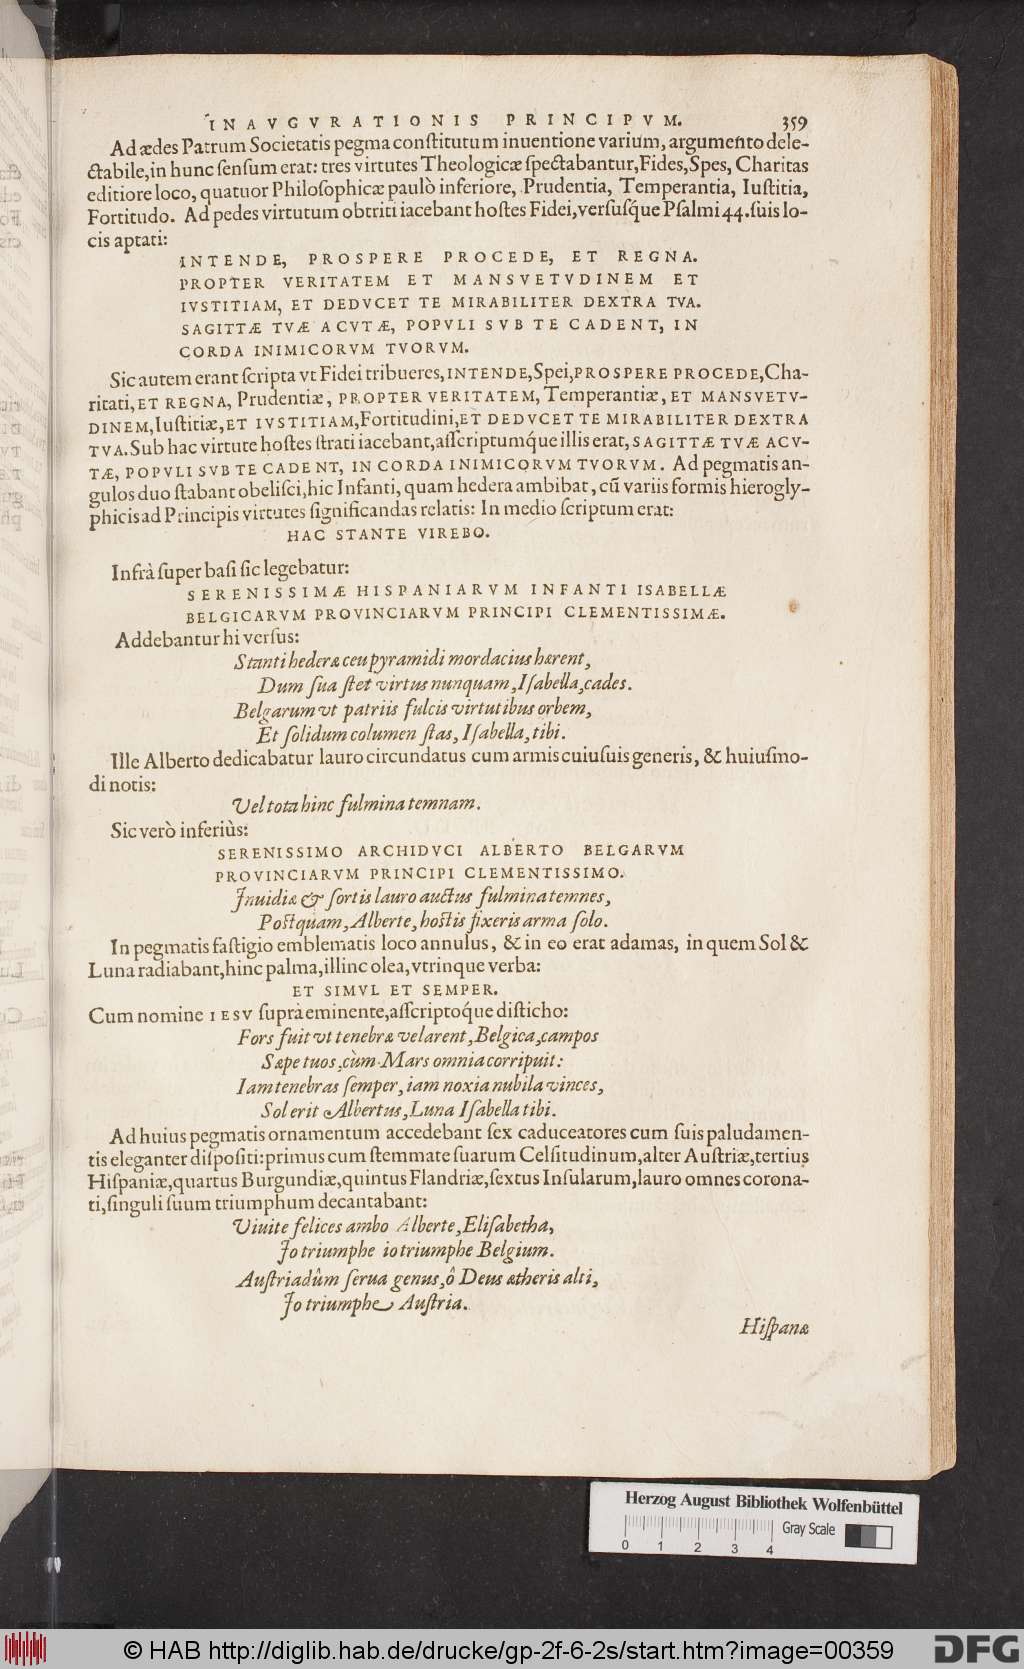 INAVGVRATIONIS PRINCIPVM. 359
Ad ædes Patrum Societatis pegma constitutum inuentione varium, argumento dele-
ctabile, in hunc sensum erat: tres virtutes Theologicæ spectabantur, Fides, Spes, Charitas
editiore loco, quatuor Philosophicæ paulò inferiore, Prudentia, Temperantia, Iustitia,
Fortitudo. Ad pedes virtutum obtriti iacebant hostes Fidei, versusq́ue Psalmi 44. suis lo-
cis aptati:
INTENDE, PROSPERE PROCEDE, ET REGNA.
PROPTER VERITATEM ET MANSVETVDINEM ET
IVSTITIAM, ET DEDVCET TE MIRABILITER DEXTRA TVA.
SAGITTÆ TVÆ ACVTÆ, POPVLI SVB TE CADENT, IN
CORDA INIMICORVM TVORVM.
Sic autem erant scripta vt Fidei tribueres, INTENDE, Spei, PROSPERE PROCEDE, Cha-
ritati, ET REGNA, Prudentiæ, PROPTER VERITATEM, Temperantiæ, ET MANSVETV-
DINEM, Iustitiæ, ET IVSTITIAM, Fortitudini, ET DEDVCET TE MIRABILITER DEXTRA
TVA. Sub hac virtute hostes strati iacebant, asscriptumq́ue illis erat, SAGITTÆ TVÆ ACV-
TÆ, POPVLI SVB TE CADENT, IN CORDA INIMICORVM TVORVM. Ad pegmatis an-
gulos duo stabant obelisci, hic Infanti, quam hedera ambibat, cū variis formis hierogly-
phicis ad Principis virtutes significandas relatis: In medio scriptum erat:
HAC STANTE VIREBO.
Infrà super basi sic legebatur:
SERENISSIMÆ HISPANIARVM INFANTI ISABELLÆ
BELGICARVM PROVINCIARVM PRINCIPI CLEMENTISSIMÆ.
Addebantur hi versus:
Stanti hederæ ceu pyramidi mordacius hærent,
Dum sua stet virtus nunquam, Isabella, cades.
Belgarum vt patriis fulcis virtutibus orbem,
Et solidum columen stas, Isabella, tibi.
Ille Alberto dedicabatur lauro circundatus cum armis cuiusuis generis, & huiusmo-
di notis:
Vel tota hinc fulmina temnam.
Sic verò inferiùs:
SERENISSIMO ARCHIDVCI ALBERTO BELGARVM
PROVINCIARVM PRINCIPI CLEMENTISSIMO.
Inuidiæ & sortis lauro auctus fulmina temnes,
Postquam, Alberte, hostis fixeris arma solo.
In pegmatis fastigio emblematis loco annulus, & in eo erat adamas, in quem Sol &
Luna radiabant, hinc palma, illinc olea, vtrinque verba:
ET SIMVL ET SEMPER.
Cum nomine IESV suprà eminente, asscriptoq́ue disticho:
Fors fuit vt tenebræ velarent, Belgica, campos
Sæpe tuos, cùm Mars omnia corripuit:
Iam tenebras semper, iam noxia nubila vinces,
Sol erit Albertus, Luna Isabella tibi.
Ad huius pegmatis ornamentum accedebant sex caduceatores cum suis paludamen-
tis eleganter dispositi: primus cum stemmate suarum Celsitudinum, alter Austriæ, tertius
Hispaniæ, quartus Burgundiæ, quintus Flandriæ, sextus Insularum, lauro omnes corona-
ti, singuli suum triumphum decantabant:
Viuite felices ambo Alberte, Elisabetha,
Io triumphe io triumphe Belgium.
Austriadûm serua genus, ô Deus ætheris alti,
Io triumphe Austria.
Hispanæ
Herzog August Bibliothek Wolfenbüttel
Gray Scale
0 1 2 3 4
© HAB http://diglib.hab.de/drucke/gp-2f-6-2s/start.htm?image=00359
DFG